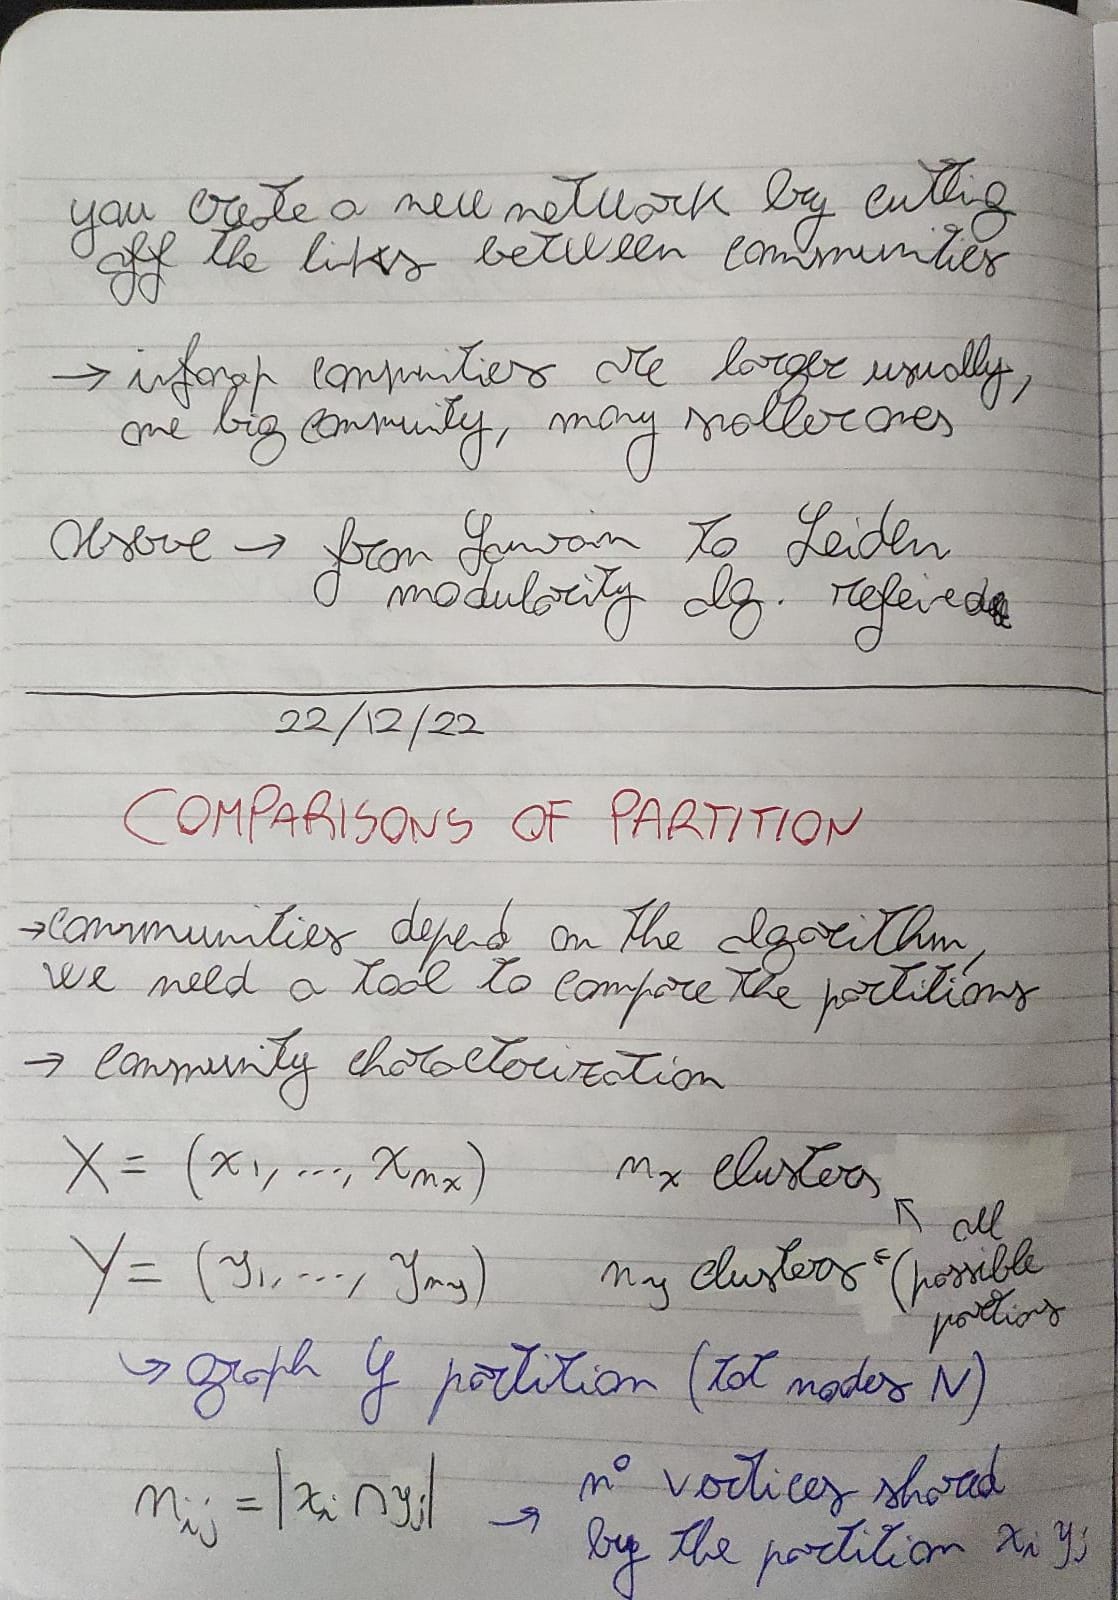 you create a new network by cutting
off the links between communities
→ infomap communities are larger usually,
one big community, many smaller ones
Observe → from Louvain to Leiden
modularity alg. refeined
22/12/22
COMPARISONS OF PARTITION
→ communities depend on the algorithm,
we need a tool to compare the partitions
→ community characterization
X = (x₁, ..., xₙₓ) nₓ clusters
↖ all
Y = (y₁, ..., yₙᵧ) nᵧ clusters ← (possible
partions
↳ graph G partition (tot nodes N)
nᵢⱼ = |xᵢ ∩ yⱼ| → n° vertices shared
by the partition xᵢ yⱼ